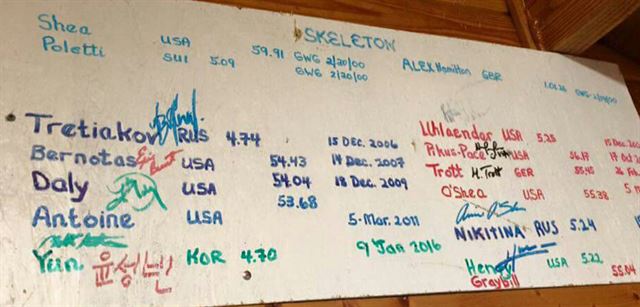 SKELETON
Shea USA 59.91 GWG 2/20/00
Poletti SUI 5.09 GWG 2/20/00
ALEX Hamilton GBR
Tretiakov RUS 4.74 15 DEC. 2006
Bernotas USA 54.43 14 DEC. 2007
Daly USA 54.04 18 DEC. 2009
53.68
Antoine USA 5-Mar. 2011
Yun 윤성빈 KOR 4.70 9 Jan 2016
Uhlaender USA 5.25 15 Dec.
Pikus-Pace USA 56.17 17 Oct
Trott M. Trott GER 55.45
O'Shea USA 55.38
NIKITINA RUS 5.24
Henry USA 5.22
Graybill 55.04